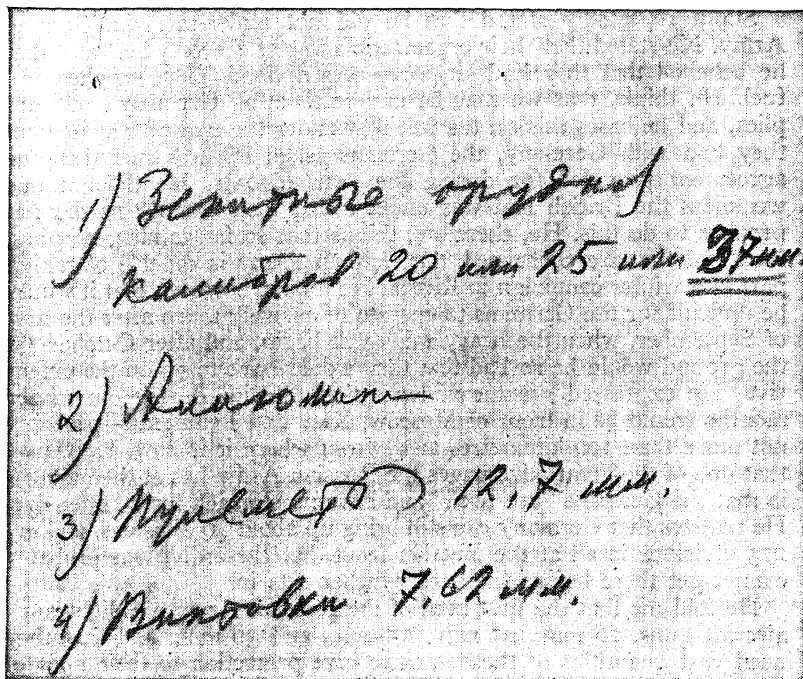 1) Зенитные орудия
калибров 20 или 25 или 37 мм.
2) Алюмин
3) Пулемет 12,7 мм.
4) Винтовки 7,62 мм.